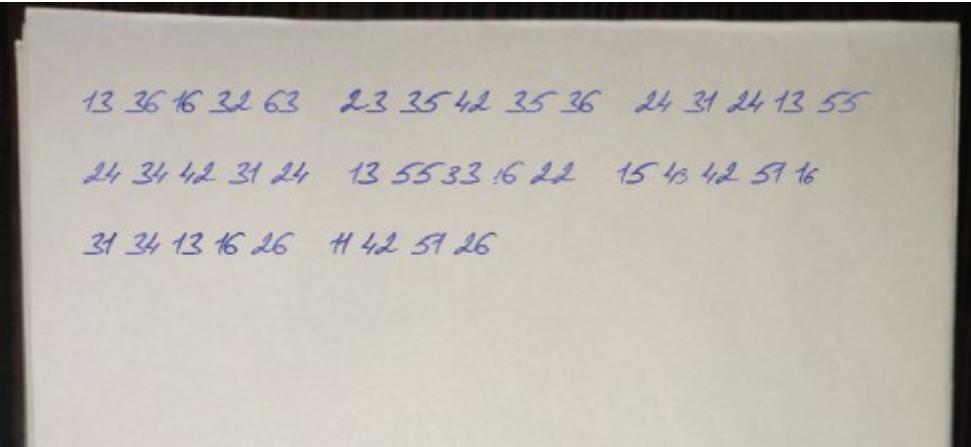 13 36 16 32 63 23 35 42 35 36 24 31 24 13 55
24 34 42 31 24 13 55 33 16 22 15 43 42 51 16
31 34 13 16 26 11 42 51 26